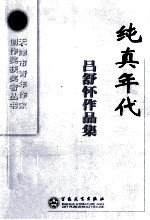 纯真年代
吕舒怀作品集
天津市青年作家
创作奖获奖者丛书
百花文艺出版社